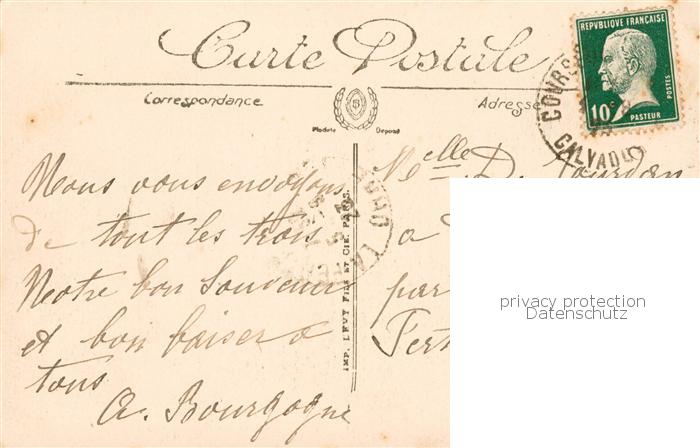 Carte Postale
Correspondance
Adresse
REPVBLIQUE FRANÇAISE
POSTES
10c
PASTEUR
CALVADOS
5
Modèle Déposé
Nous vous envoyons
de tout les trois
Notre bon Souvenir
et bon baiser à
tous
A. Bourgogne
IMP. LEVY FILS ET CIE. PARIS
Melle D.
a
par
privacy protection
Datenschutz